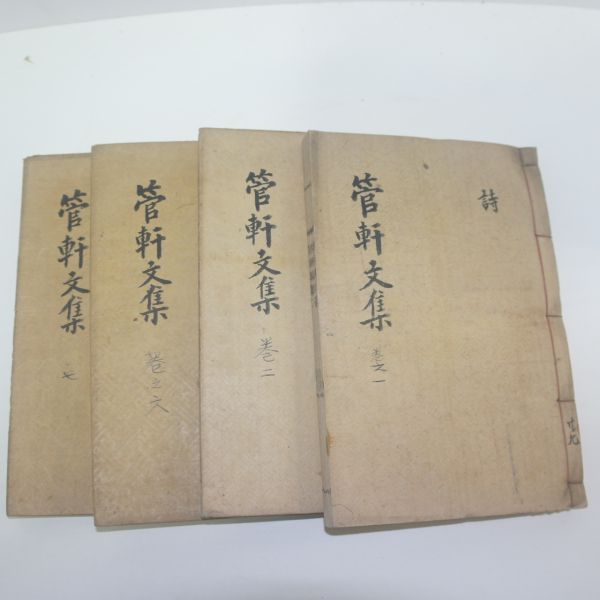 詩
管軒文集
卷之一
管軒文集
卷二
管軒文集
管軒文集
七